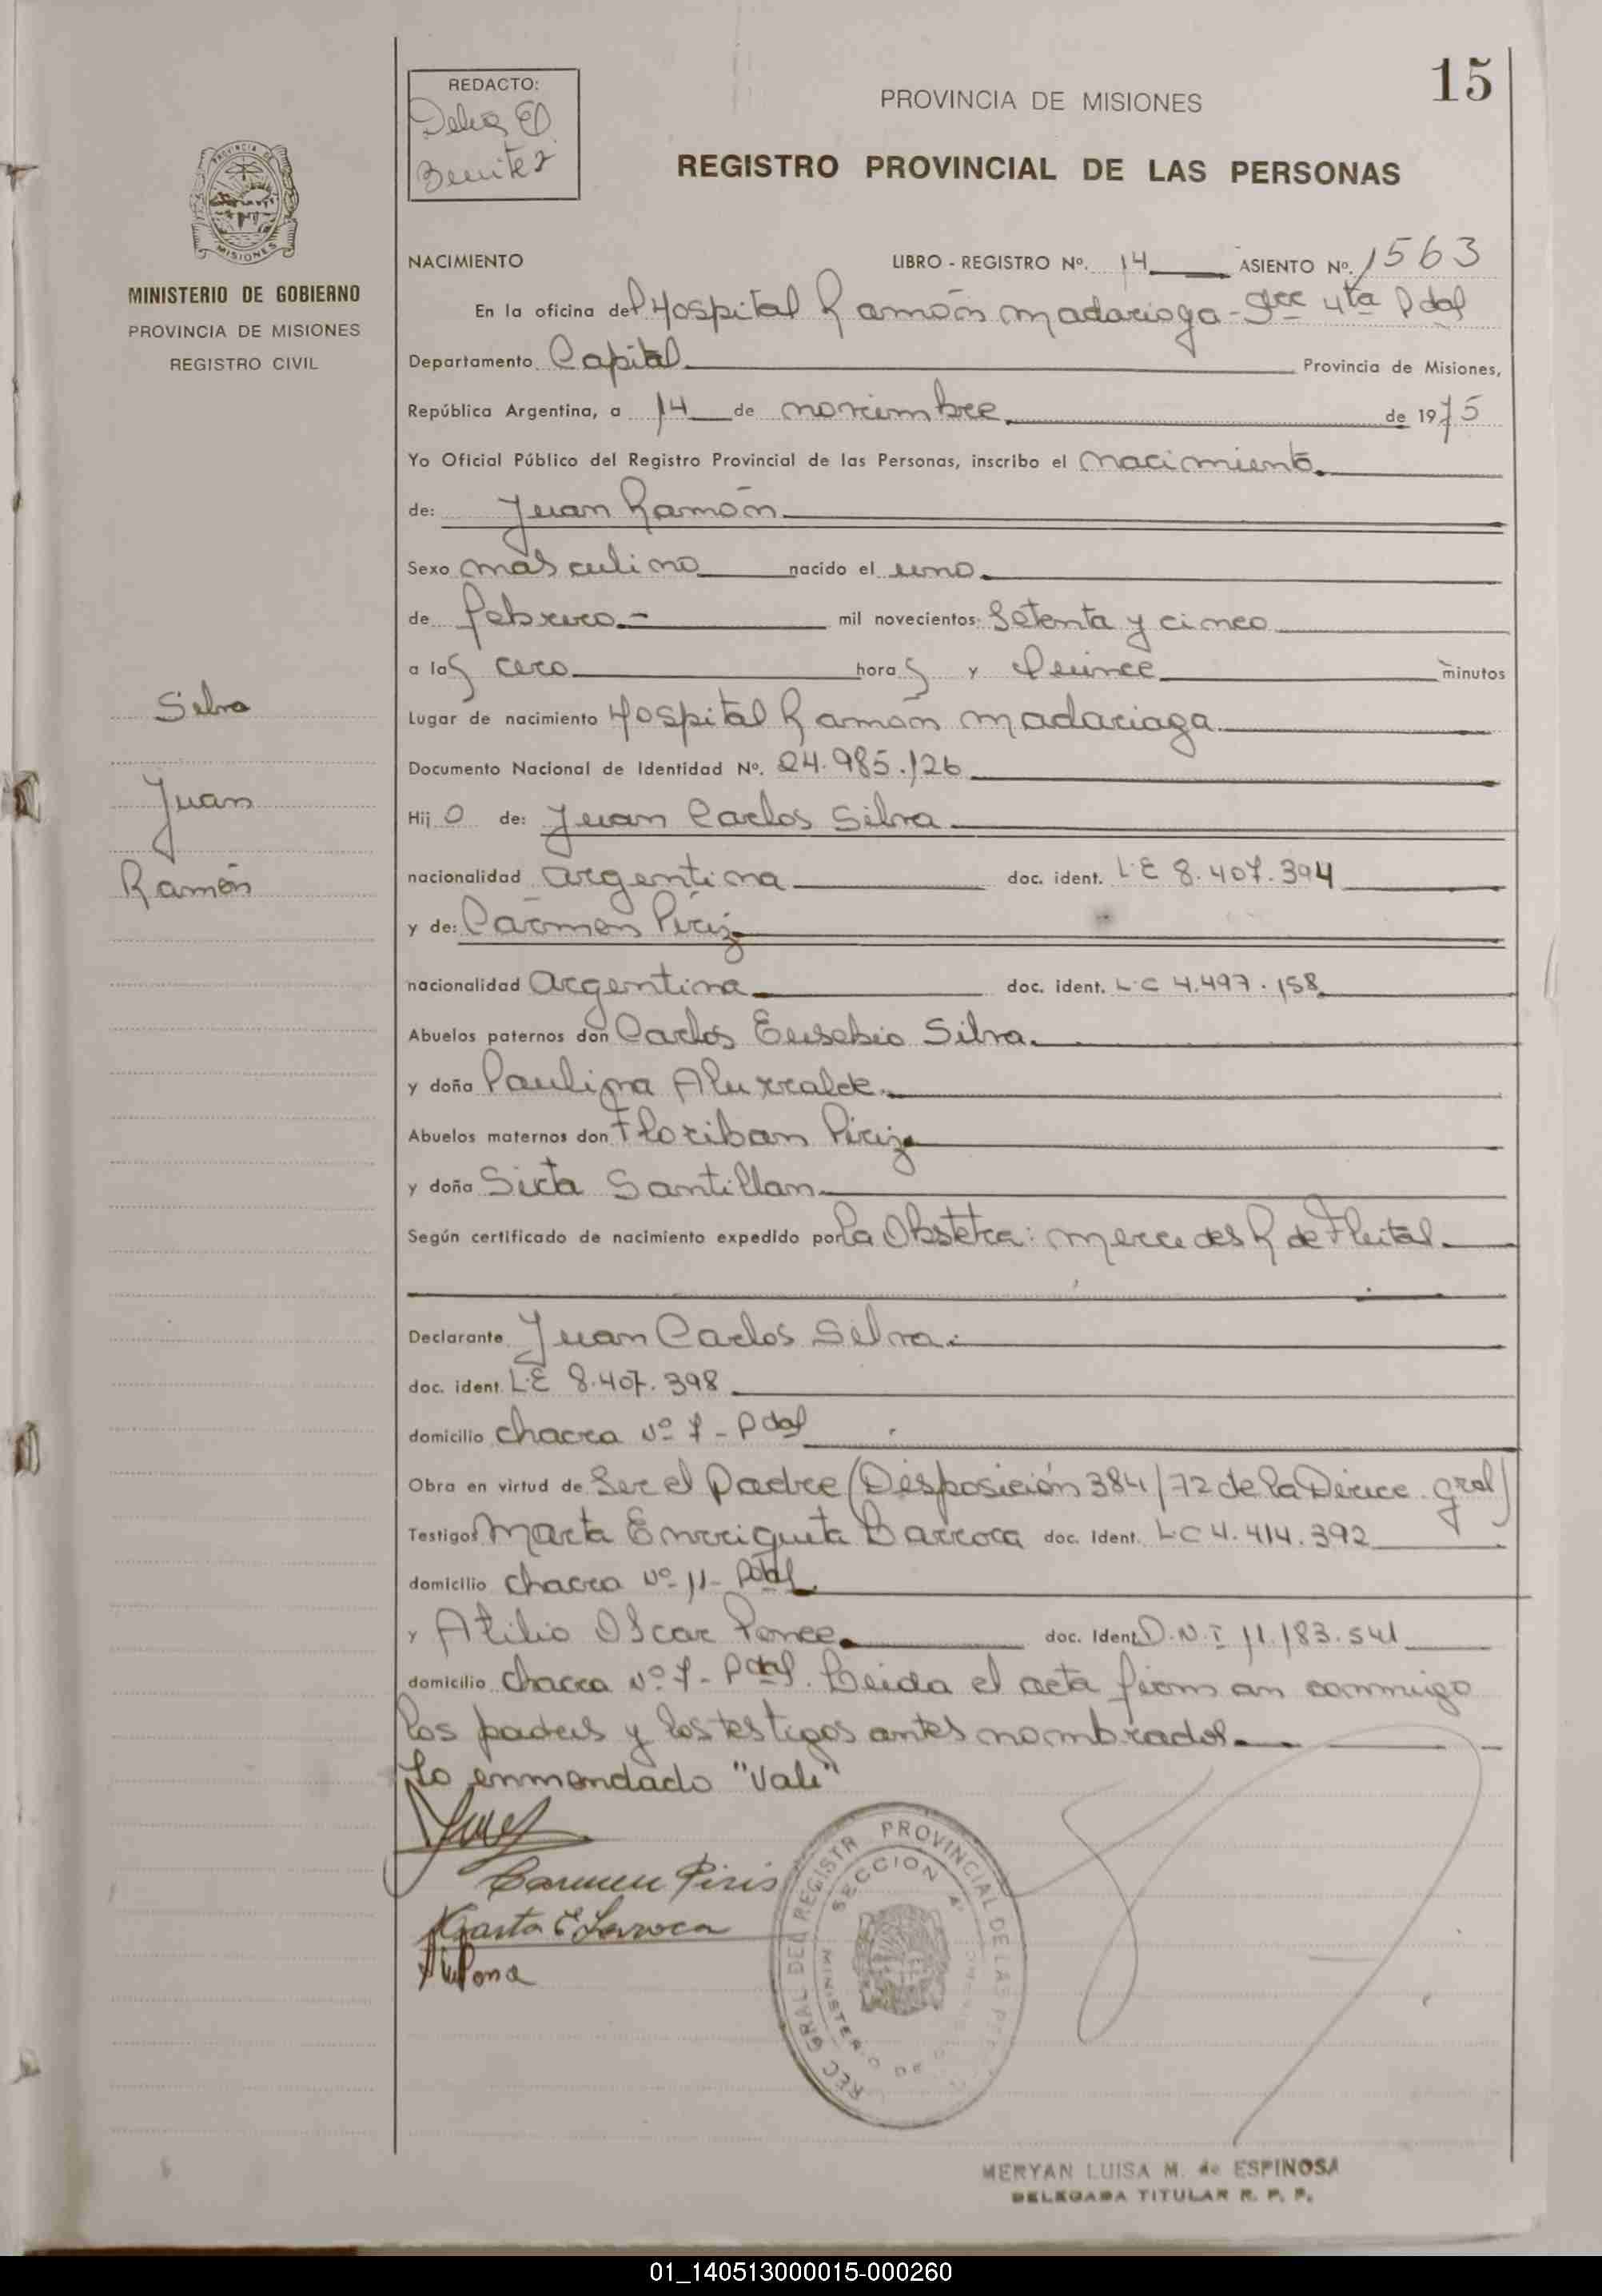 15
REDACTO:
Delia E
Benitez
PROVINCIA DE MISIONES
REGISTRO PROVINCIAL DE LAS PERSONAS
PROVINCIA DE
MISIONES
MINISTERIO DE GOBIERNO
PROVINCIA DE MISIONES
REGISTRO CIVIL
NACIMIENTO LIBRO - REGISTRO Nº. 14 ASIENTO Nº. 1563
En la oficina del Hospital Ramón Madariaga - Secc 4ta Pdas
Departamento Capital Provincia de Misiones,
República Argentina, a 14 de noviembre de 1975
Yo Oficial Público del Registro Provincial de las Personas, inscribo el nacimiento
de: Juan Ramón
Sexo masculino nacido el uno
de febrero mil novecientos setenta y cinco
a las cero horas y Quince minutos
Lugar de nacimiento Hospital Ramón Madariaga
Documento Nacional de Identidad Nº. 24.985.126
Hijo de: Juan Carlos Silva
nacionalidad argentina doc. ident. L E 8.407.394
y de: Carmen Piriz
nacionalidad Argentina doc. ident. L C 4.497.158
Abuelos paternos don Carlos Eusebio Silva
y doña Paulina Alurralde
Abuelos maternos don Floriban Piriz
y doña Sixta Santillan
Según certificado de nacimiento expedido por la Obstetra: Mercedes R de Fleital
Declarante Juan Carlos Silva
doc. ident. L.E 8.407.398
domicilio chacra Nº 7 - Pdas
Obra en virtud de Ser el Padre (Disposición 384/72 de la Direcc. Gral)
Testigos Marta Enriqueta Barroca doc. Ident. L C 4.414.392
domicilio chacra Nº 11 - Pdas
y Atilio Oscar Ponce doc. Ident. D.N.I 11.183.541
domicilio chacra Nº 7 - Pdas. Leida el acta firman conmigo
los padres y los testigos antes nombrados
Lo enmendado "Vale"
Carmen Piris
Marta E Larroca
Silva
Juan
Ramón
REC GRAL DEL REGISTR PROVINCIAL DE LAS PER
SECCION 4ª
MINISTERIO DE
MERYAN LUISA M. de ESPINOSA
DELEGADA TITULAR R. P. P.
01_140513000015-000260